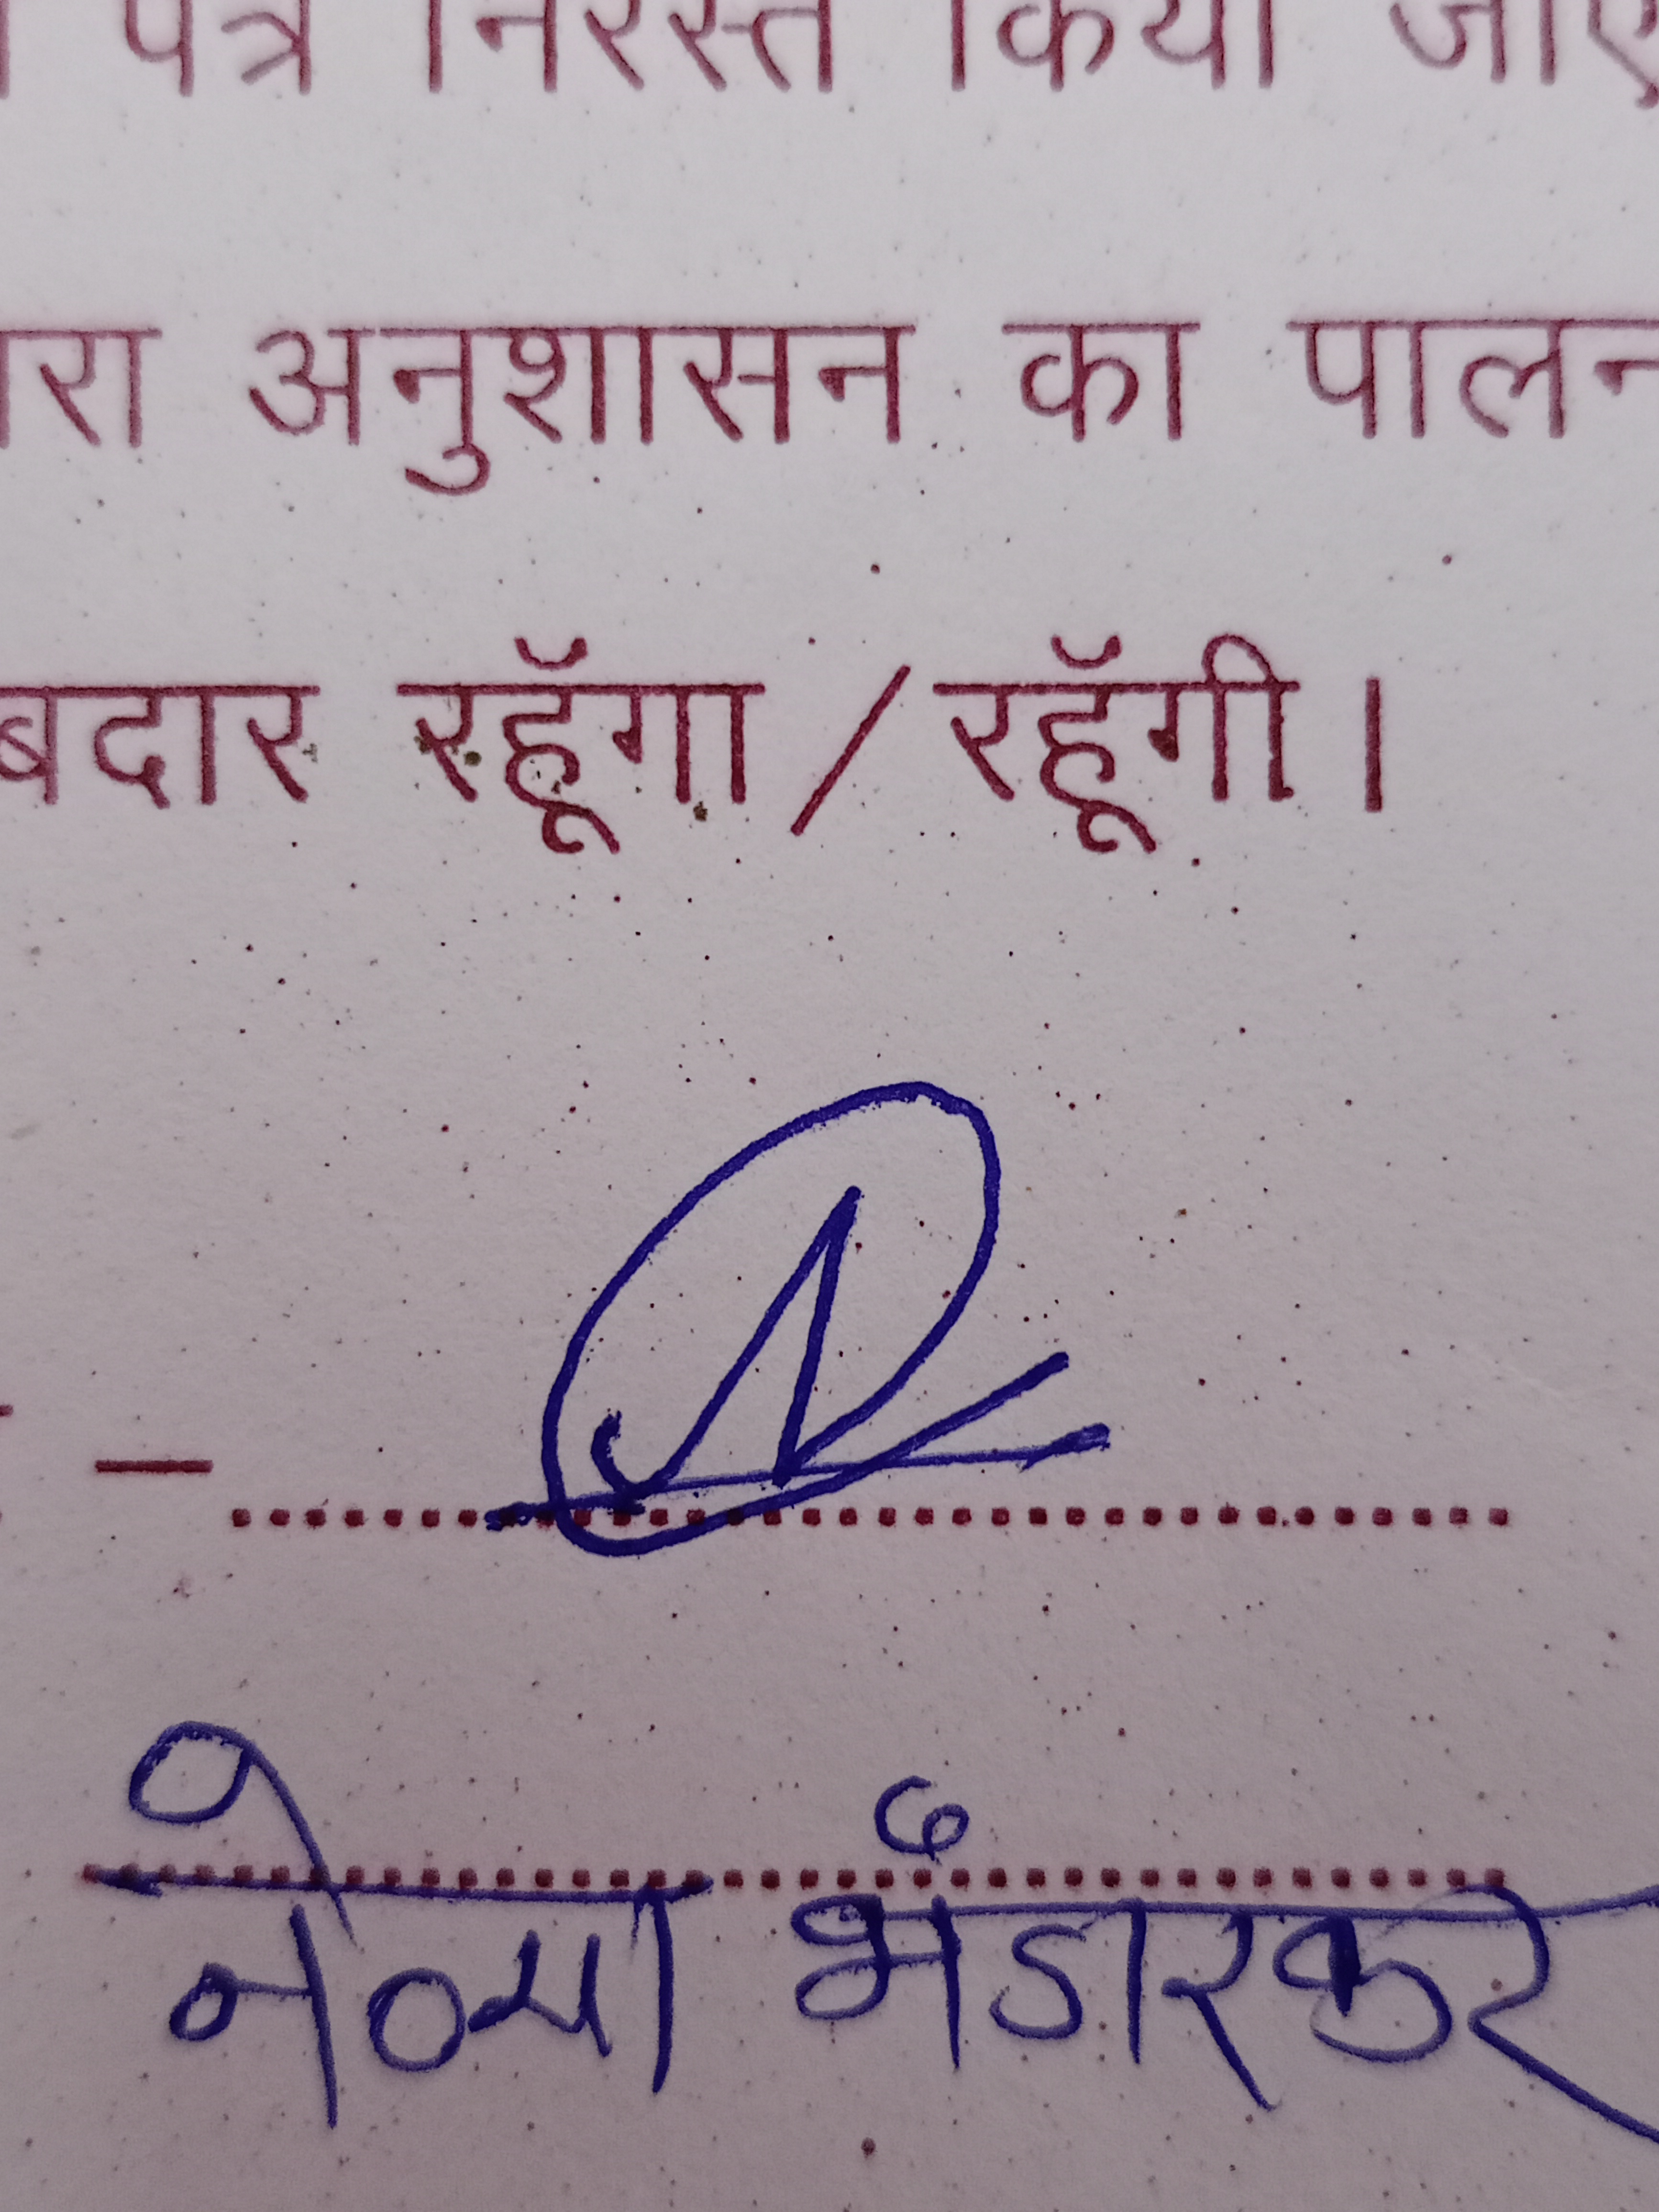 पत्र निरस्त किया जाए
रा अनुशासन का पालन
बदार रहूँगा / रहूँगी ।
–
नेव्या भंडारकर